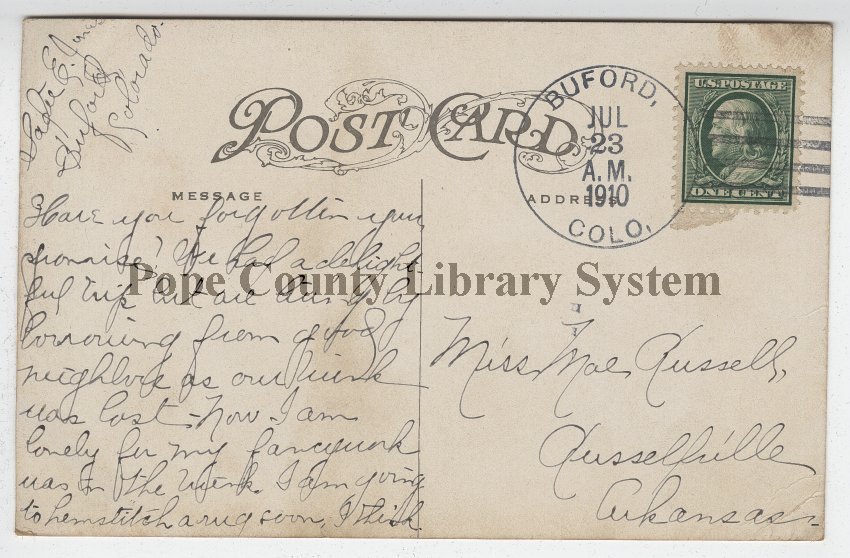 Sadie E. Jones
Buford
Colorado.
POST CARD
MESSAGE
ADDRESS
BUFORD,
JUL
23
A.M.
1910
COLO.
U.S. POSTAGE
ONE CENT
Have you forgotten your
promise? We had a delight
ful trip but are living by
borrowing from good
neighbors as our trunk
was lost - Now - I am
lonely for my fancywork
was in the trunk. I am going
to hemstitch a rug soon, I think
Pope County Library System
Miss Mae Russell,
Russellville
Arkansas-